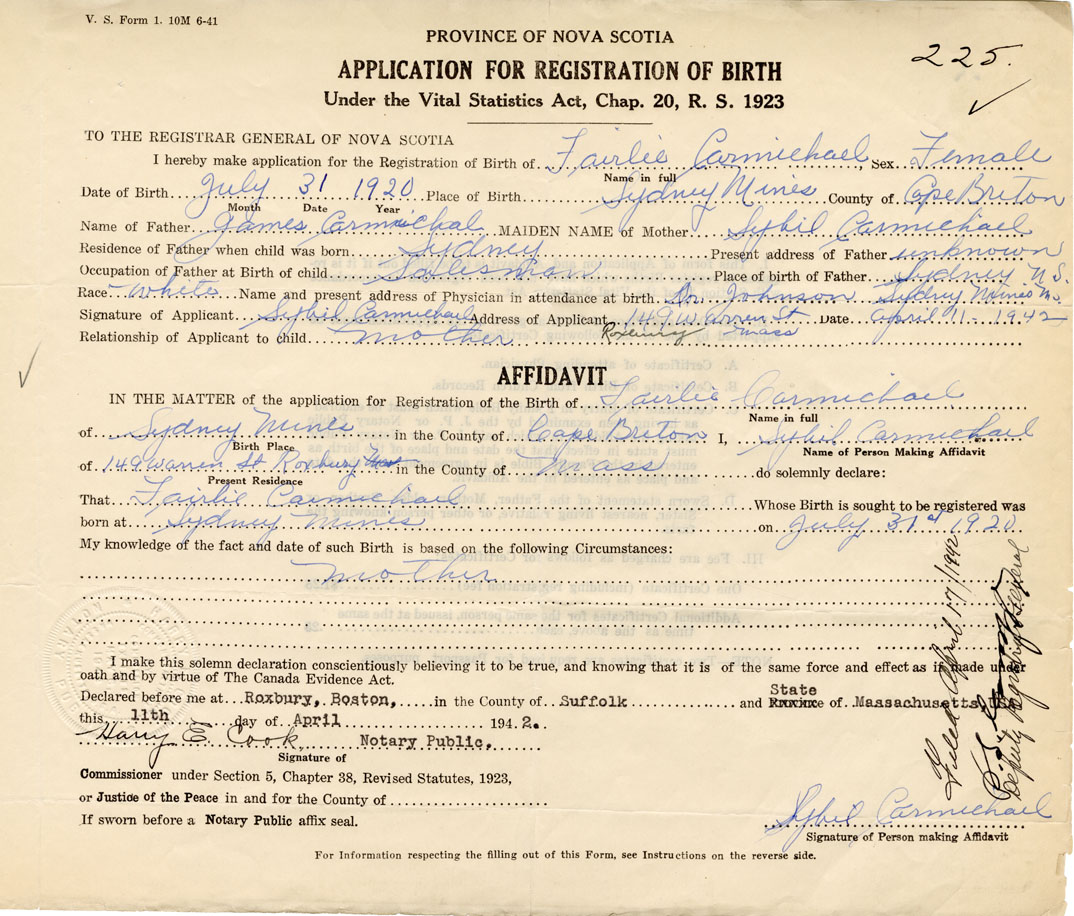 V. S. Form 1. 10M 6-41
PROVINCE OF NOVA SCOTIA
225.
APPLICATION FOR REGISTRATION OF BIRTH
Under the Vital Statistics Act, Chap. 20, R. S. 1923
TO THE REGISTRAR GENERAL OF NOVA SCOTIA
I hereby make application for the Registration of Birth of Fairlie Carmichael, Sex Female
Name in full
Date of Birth July 31 1920 Place of Birth Sydney Mines County of Cape Breton
Month Date Year
Name of Father James Carmichal MAIDEN NAME of Mother Sybil Carmichael
Residence of Father when child was born Sydney Present address of Father unknown
Occupation of Father at Birth of child Salesman Place of birth of Father Sydney N.S.
Race White Name and present address of Physician in attendance at birth Dr. Johnson Sydney Mines N.S.
Signature of Applicant Sybil Carmichael Address of Applicant 149 Warren St Date April 11 - 1942
Relationship of Applicant to child mother Roxbury Mass
AFFIDAVIT
IN THE MATTER of the application for Registration of the Birth of Fairlie Carmichael
Name in full
of Sydney Mines in the County of Cape Breton I, Sybil Carmichael
Birth Place Name of Person Making Affidavit
of 149 Warren St Roxbury Mass in the County of Mass do solemnly declare:
Present Residence
That Fairlie Carmichael Whose Birth is sought to be registered was
born at Sydney Mines on July 31st 1920
My knowledge of the fact and date of such Birth is based on the following Circumstances:
mother
I make this solemn declaration conscientiously believing it to be true, and knowing that it is of the same force and effect as if made under
oath and by virtue of The Canada Evidence Act.
Declared before me at Roxbury, Boston, in the County of Suffolk and State Province of Massachusetts,
this 11th day of April 1942.
Harry E. Cook Notary Public,
Signature of
Commissioner under Section 5, Chapter 38, Revised Statutes, 1923,
or Justice of the Peace in and for the County of
If sworn before a Notary Public affix seal.
Sybil Carmichael
Signature of Person making Affidavit
For Information respecting the filling out of this Form, see Instructions on the reverse side.
Filed April 17/1942
Deputy Registrar General